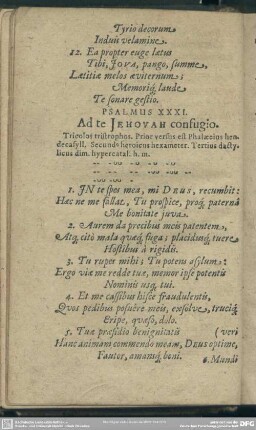 Tyrio decorum
Induis velamine.
12. Ea propter euge lætus
Tibi, JOVA, pango, summe,
Lætitiæ melos æviternum;
Memoriq́; laude
Te sonare gestio.
PSALMUS XXXI.
Ad te JEHOVAH confugio.
Tricolos tristrophos. Prior versus est Phalæcius hen-
decasyll. Secundus heroicus hexameter. Tertius dacty-
licus dim. hypercatal. h. m.
1. IN te spes mea, mi DEUS, recumbit:
Hæc ne me fallat, Tu prospice, proq́; paterna
Me bonitate juva.
2. Aurem da precibus meis patentem,
Atq; cito mala quæq́; fuga; placidusq́; tuere
Hostibus à rigidis.
3. Tu rupes mihi; Tu potens asylum:
Ergo viæ me redde tuæ, memor ipse potentis
Nominis usq; tui.
4. Et me cassibus hisce fraudulentis,
Quos pedibus posuêre meis, exsolve, truciq́;
Eripe, quæso, dolo.
5. Tuæ præsidio benignitatis (veri
Hanc animam commendo meam, DEUS optime,
Fautor, amansq́; boni.
6. Mundi